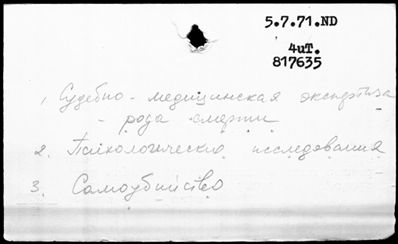 5.7.71.ND
4иТ.
817635
1, Судебно - медицинская экспертиза
- рода смерти
2. Психологические исследования
3. Самоубийство